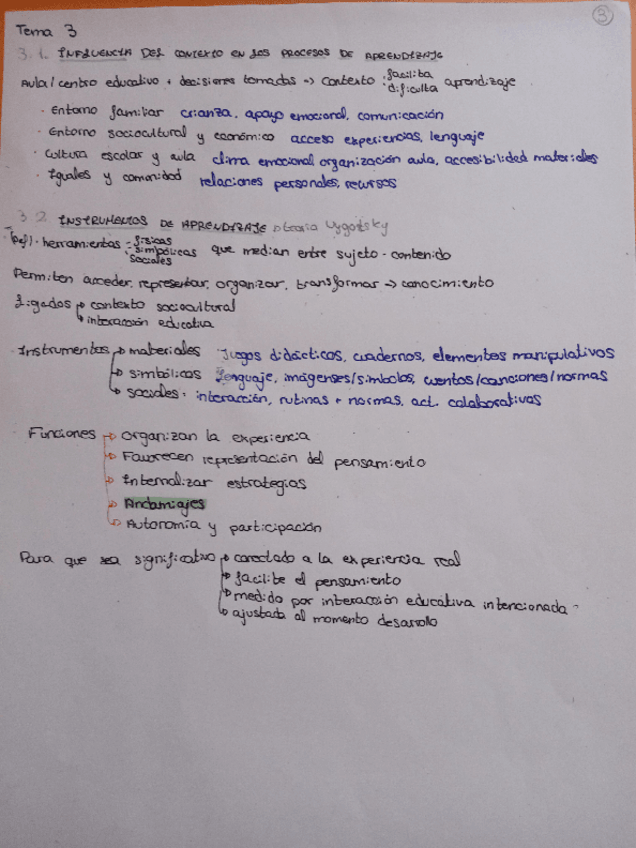 3
Tema 3
3.1. INFLUENCIA DEL CONTEXTO EN LOS PROCESOS DE APRENDIZAJE
Aula/centro educativo + decisiones tomadas → contexto · facilita · dificulta aprendizaje
· Entorno familiar crianza, apoyo emocional, comunicación
· Entorno sociocultural y económico acceso experiencias, lenguaje
· Cultura escolar y aula clima emocional organización aula, accesibilidad materiales
· Iguales y comunidad relaciones personales, recursos
3.2 INSTRUMENTOS DE APRENDIZAJE teoría Vygotsky
(Def) · herramientas - físicas - simbólicas sociales que median entre sujeto - contenido
Permiten acceder, representar, organizar, transformar → conocimiento
Ligados → contexto sociocultural
→ interacción educativa
Instrumentos → materiales Juegos didácticos, cuadernos, elementos manipulativos
→ simbólicos Lenguaje, imágenses/símbolos, cuentos/canciones/normas
→ sociales · interacción, rutinas + normas, act. colaborativas
Funciones → Organizan la experiencia
→ Favorecen representación del pensamiento
→ Internalizar estrategias
→ Andamiajes
→ Autonomía y participación
Para que sea significativo → conectado a la experiencia real
→ facilite el pensamiento
→ medido por interacción educativa intencionada
→ ajustada al momento desarrollo